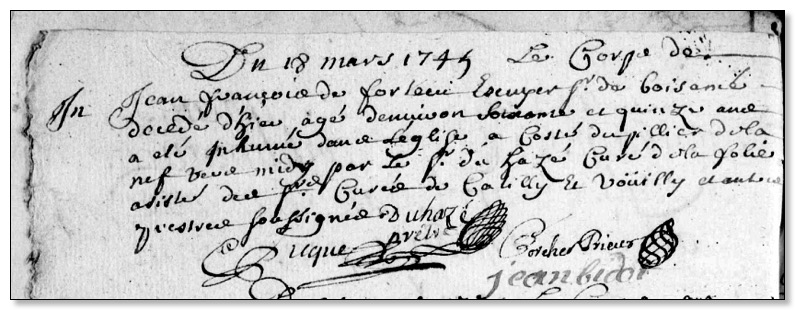 Du 18 mars 1745 Le Corps de
In
Jean françois de forteciu Escuyer Sr. de boisemé
decedé d'hier agé denuiron soixante et quinze ans
a eté Inhumé dans Leglise a Costé du pillier de la
nef vers midy par Le Sr. du hazé Curé de la folie
asisté des Srs Curés de Catilly Et Voüilly et autres
prestres soussignés Duhazé
prêtre
Cucque Corcher Prieur
jean bidot